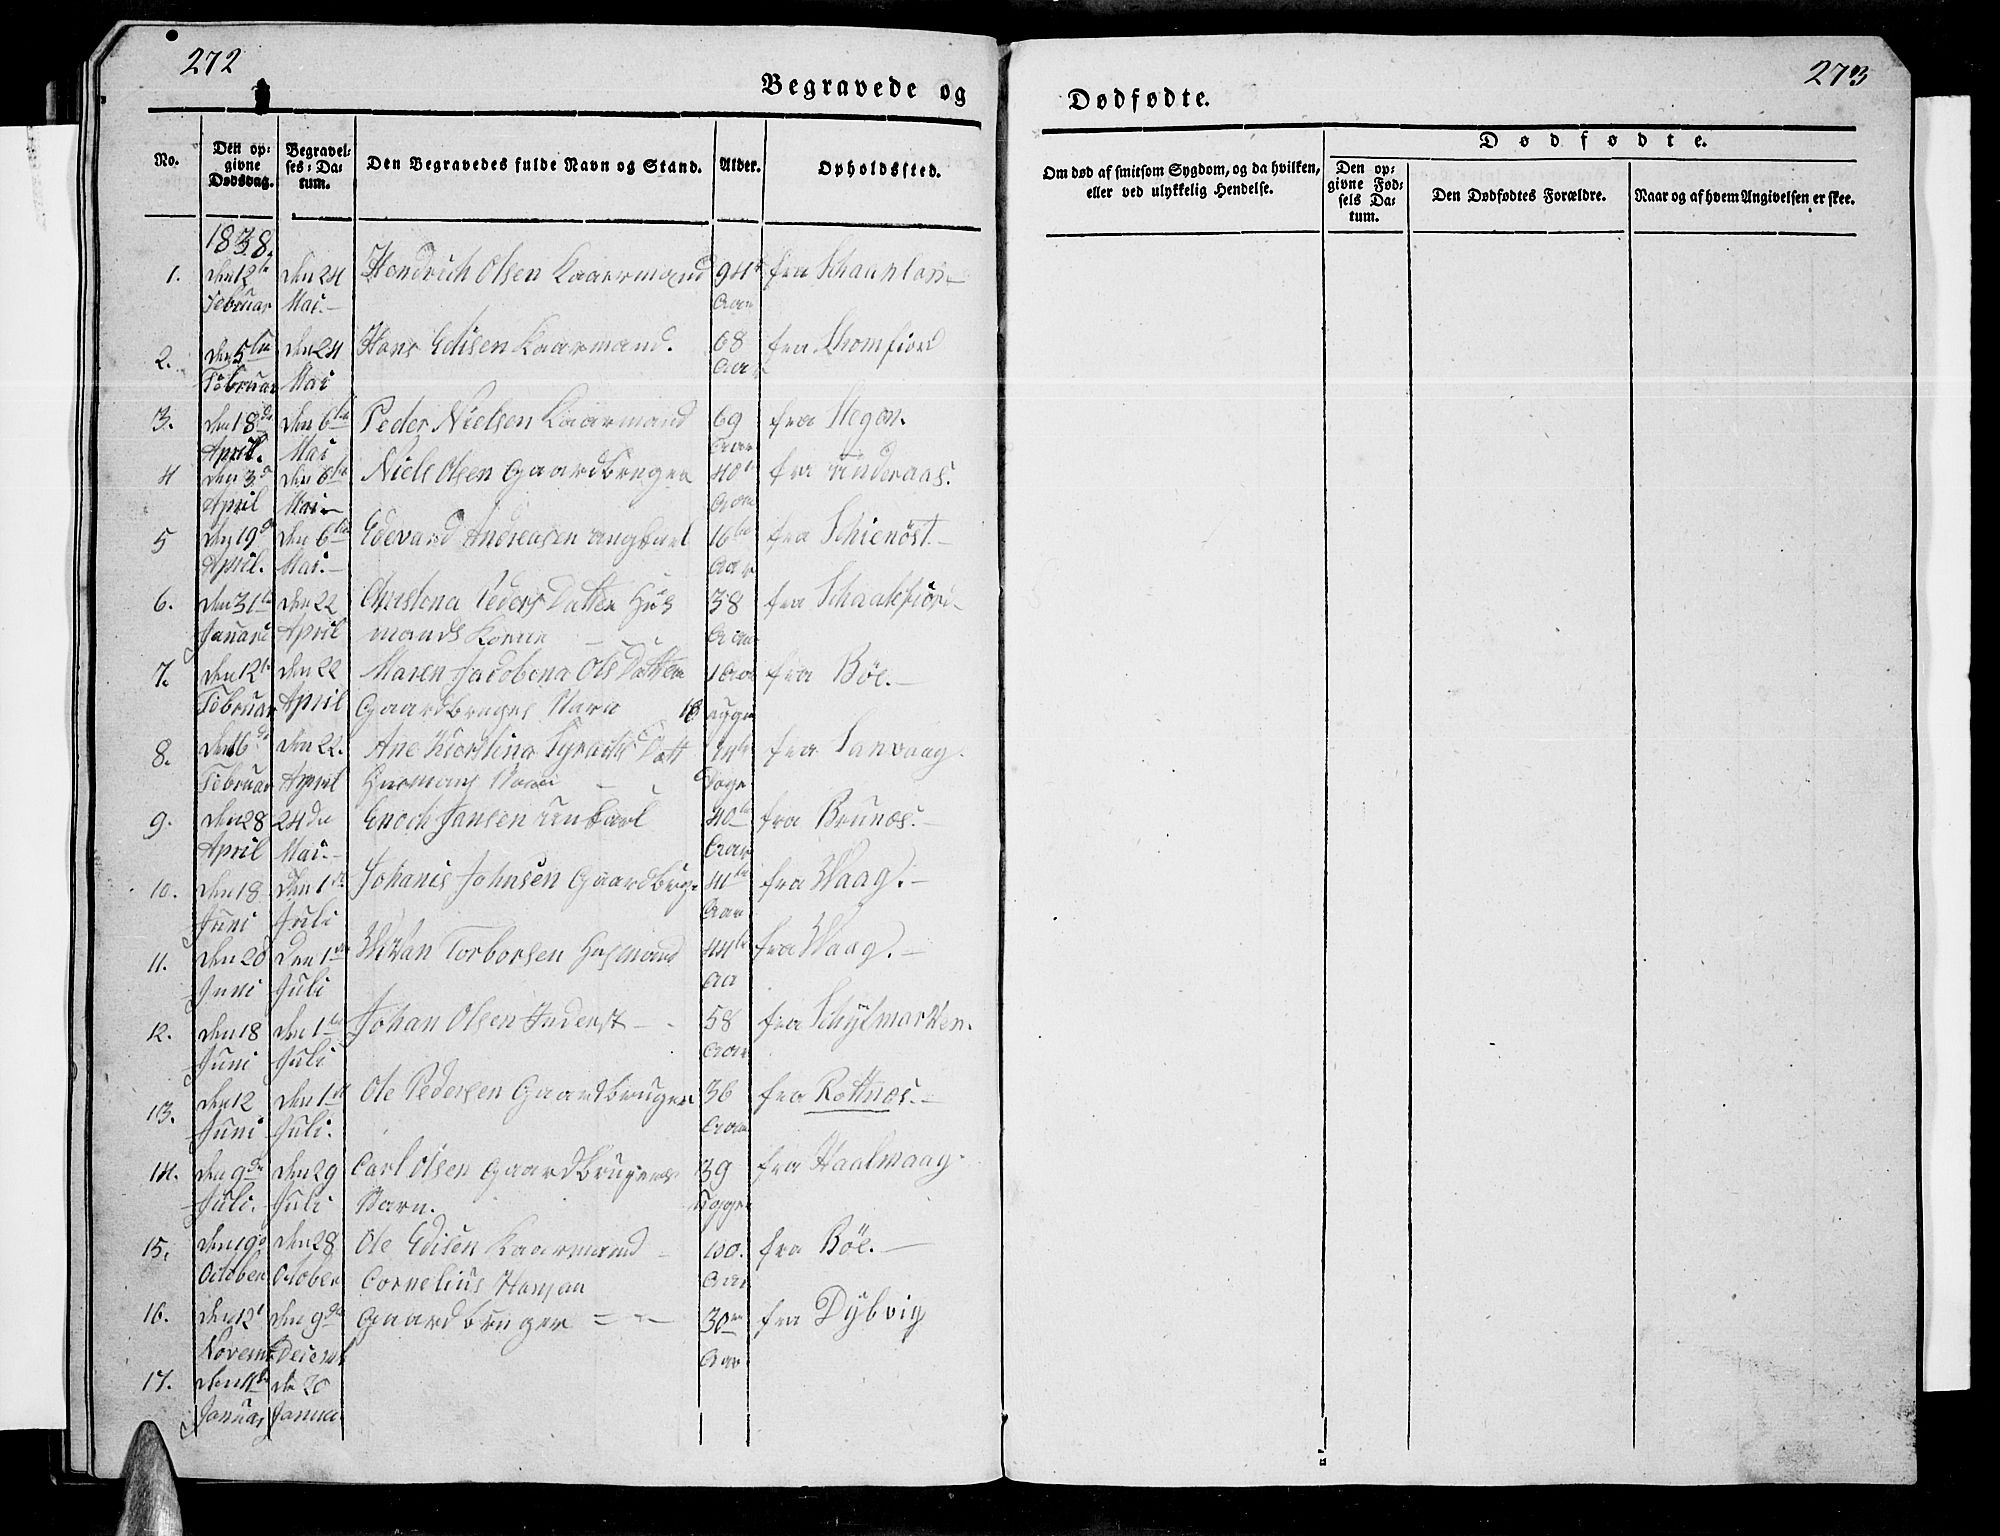 272
273
Begravede og
Dødfødte.
No.
Den op=
givne
Dødsdag.
Begravel=
ses=Da=
tum.
Den Begravedes fulde Navn og Stand.
Alder.
Opholdssted.
Om død af smitsom Sygdom, og da hvilken,
eller ved ulykkelig Hendelse.
Dødfødte.
Den op=
givne Fød=
sels Da=
tum.
Den Dødfødtes Forældre.
Naar og af hvem Angivelsen er skee.
1838.
1. den 12te den 24 Hendrich Olsen Kaarmand 94 fra
Februar Mai.— Aar
2. den 5te den 24 Hans Edisen Kaarmand. 68 fra
Februar Mai Aar
3. den 18de den 6te Peder Nielsen Kaarmand 69 fra
April. Mai Aar
4 den 3de den 6te Niels Olsen Gaardbruger 40 fra Inderaas.
April Mai.— Aar
5 den 19de den 6te Edevard Andreasen ungkarl 16te fra Schienöst—
April. Mai.— Aar
6. den 31te den 22 Christena Peders Datter Hus 38 fra
Januari April mands Konne — Aar
7. den 12te den 22 Maren Jacobena Ols Datter 1 Aar fra Böe.—
Februar April Gaardbruges Barn 18 uger
8. den 16de den 22. Ane Kierstina Datt fra Sanvaag.
Februar April Husmans Barn — Dage
9. den 28 24de Enoch Jansen unkarl 40te fra Brunæs.—
April Mai.— Aar
10. den 18 den 1te Johanis Johnsen Gaardbrug. 41te fra Waag.—
Juni Juli Aar
11. den 28 den 1te Torborsen Husmand 44te fra Waag.—
Juni Juli Aa
12. den 18 den 1te Johan Olsen Inderst — 58 fra Schylmarken.
Juni Juli Aar
13. den 12 den 1te Ole Pedersen Gaardbruger 36 fra Rottnæs.—
Juni Juli. Aar
14. den 9de den 29 Carl Olsen Gaardbrugers 39 fra Haalvaag.
Juli. Juli Barn. Ugger
15. den 19de den 28 Ole Edisen Kaarmand — 100. fra Böe.—
October October Cornelius Hansen Aar
16. den 12t den 9de Gaardbruger = — 30 fra Dybvig
Novem Decemb Aar
17. den 11te de 20
Januar Janua